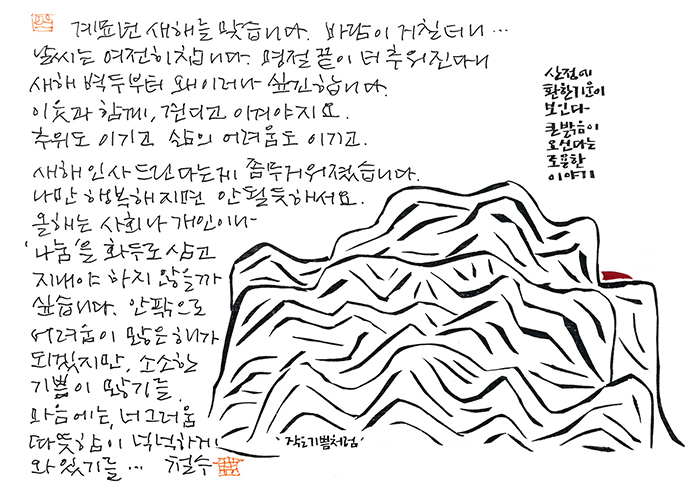 계묘년 새해를 맞습니다. 바람이 거칠더니…
날씨는 여전히 찹니다. 명절 끝이 더 추워진다니
새해 벽두부터 왜 이러나 싶긴 합니다.
이웃과 함께, 견디고 이겨야지요.
추위도 이기고 삶의 어려움도 이기고.
새해 인사 드린다는게 쫌 무거워졌습니다.
나만 행복해지면 안될 듯해서요.
올해는 사회나 개인이나
'나눔'을 화두로 삼고
지내야 하지 않을까
싶습니다. 안팎으로
어려움이 많은 해가
되겠지만, 소소한
기쁨이 많기를.
마음에는, 너그러움
따뜻함이 넉넉하게
와 있기를… 철수
산정에
환한 기운이
보인다
큰 밝음이
오신다는
조용한
이야기
'작은 기쁨처럼'